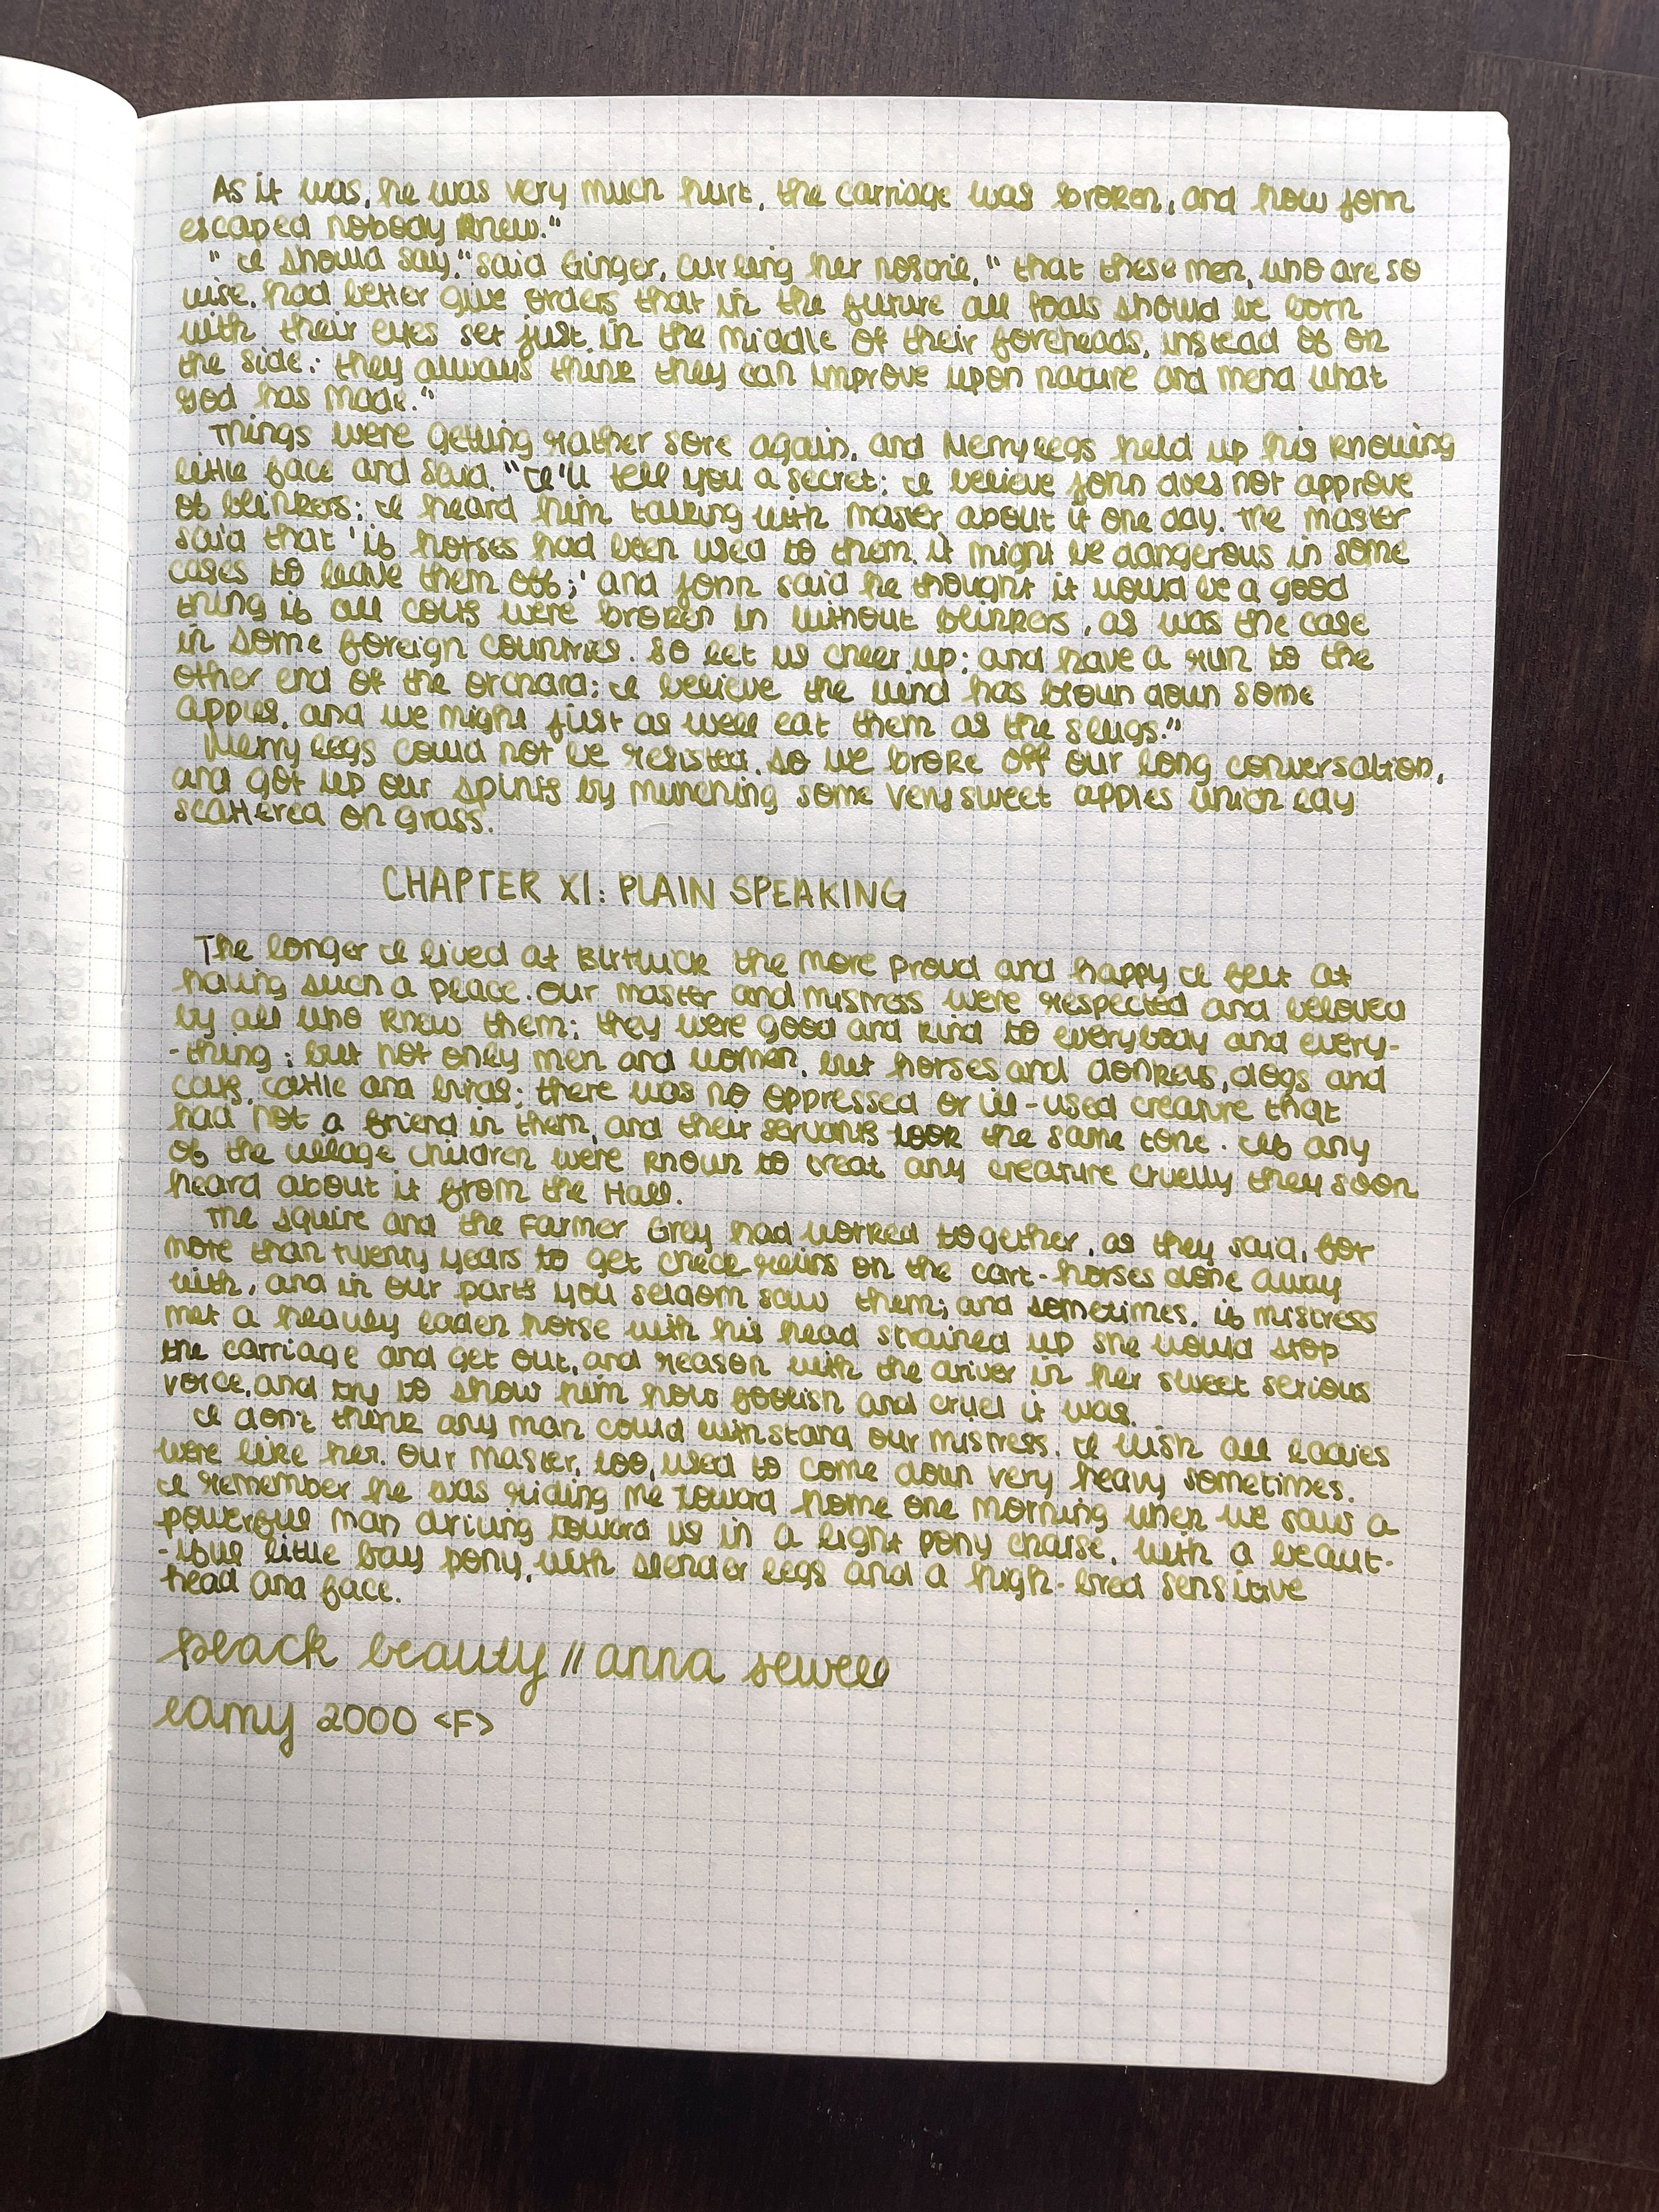 As it was, he was very much hurt, the carriage was broken, and how John
escaped nobody knew."
"I should say," said Ginger, curling her nostril, "that these men, who are so
wise, had better give orders that in the future all foals should be born
with their eyes set just in the middle of their foreheads, instead of on
the side: they always think they can improve upon nature and mend what
God has made."
Things were getting rather sore again, and Merrylegs held up his knowing
little face and said, "I'll tell you a secret: I believe John does not approve
of blinkers; I heard him talking with master about it one day. The master
said that 'if horses had been used to them, it might be dangerous in some
cases to leave them off;' and John said he thought it would be a good
thing if all colts were broken in without blinkers, as was the case
in some foreign countries. So let us cheer up; and have a run to the
other end of the orchard; I believe the wind has blown down some
apples, and we might just as well eat them as the slugs."
Merrylegs could not be resisted, so we broke off our long conversation,
and got up our spirits by munching some very sweet apples which lay
scattered on grass.
CHAPTER XI: PLAIN SPEAKING
The longer I lived at Birtwick the more proud and happy I felt at
having such a place. Our master and mistress were respected and beloved
by all who knew them; they were good and kind to everybody and every-
-thing; but not only men and women, but horses and donkeys, dogs and
cats, cattle and birds; there was no oppressed or ill-used creature that
had not a friend in them, and their servants took the same tone. If any
of the village children were known to treat any creature cruelly they soon
heard about it from the Hall.
The squire and the Farmer Grey had worked together, as they said, for
more than twenty years to get check-reins on the cart-horses done away
with, and in our parts you seldom saw them; and sometimes, if mistress
met a heavily laden horse with his head strained up she would stop
the carriage and get out, and reason with the driver in her sweet serious
voice, and try to show him how foolish and cruel it was.
I don't think any man could withstand our mistress. I wish all ladies
were like her. Our master, too, used to come down very heavy sometimes.
I remember he was riding me toward home one morning when we saw a
powerful man driving toward us in a light pony chaise, with a beaut-
-iful little bay pony, with slender legs and a high-bred sensitive
head and face.
black beauty // anna sewell
lamy 2000 <F>